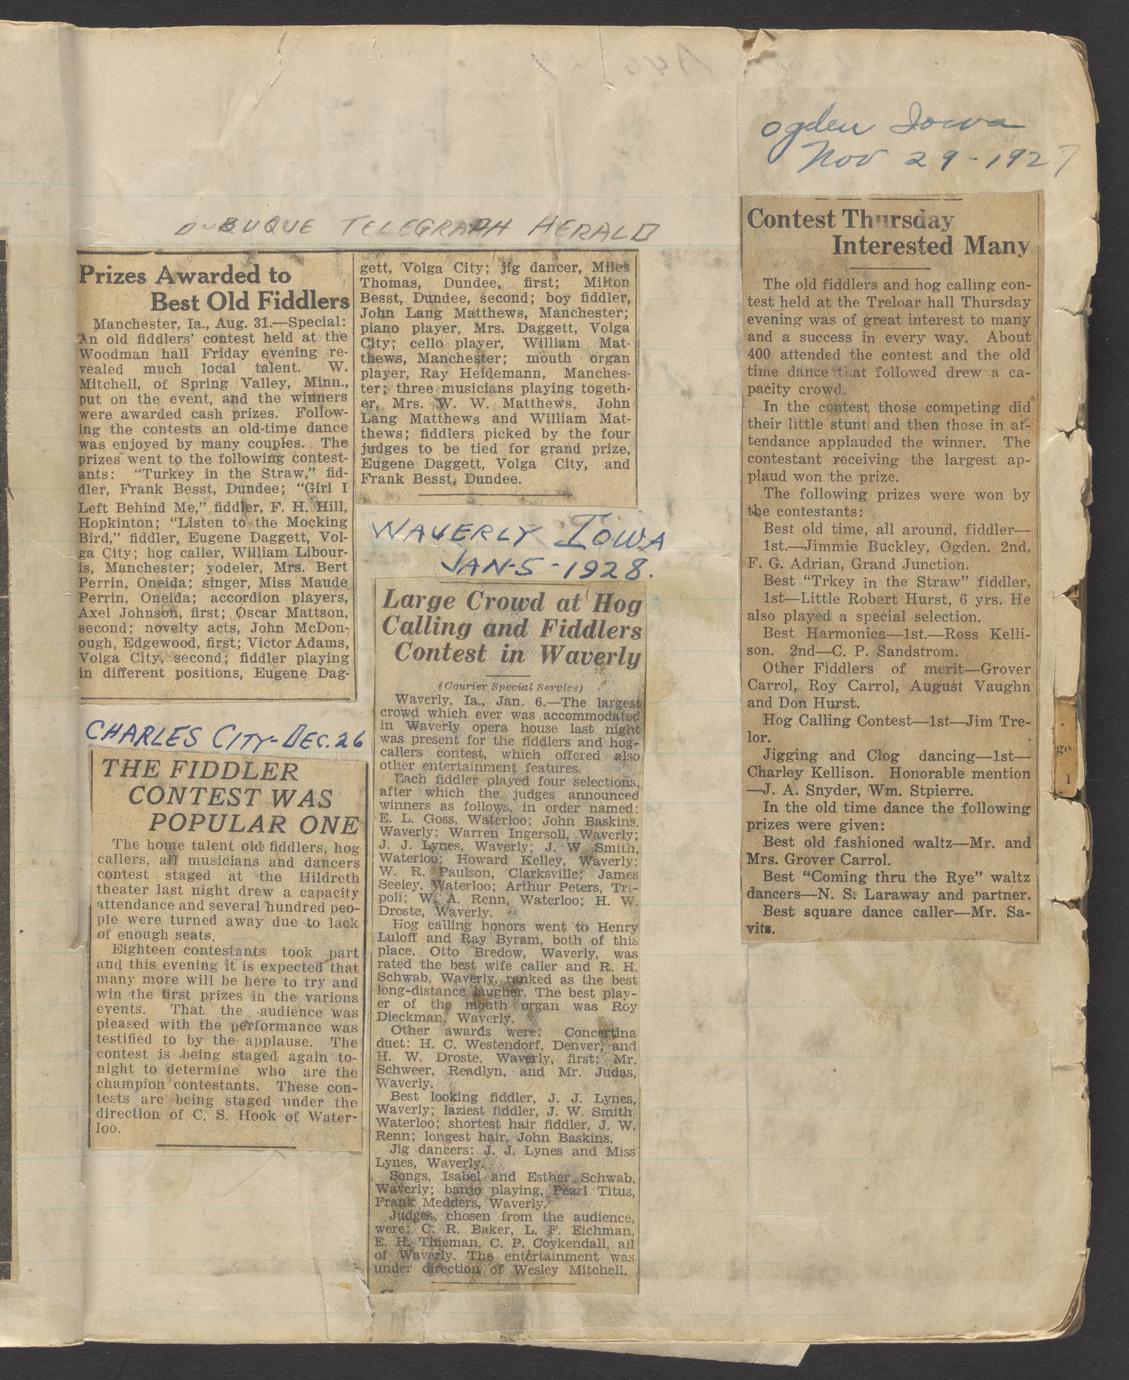 DUBUQUE TELEGRAPH HERALD
Prizes Awarded to
Best Old Fiddlers
Manchester, Ia., Aug. 31.—Special:
An old fiddlers' contest held at the
Woodman hall Friday evening re-
vealed much local talent. W.
Mitchell, of Spring Valley, Minn.,
put on the event, and the winners
were awarded cash prizes. Follow-
ing the contests an old-time dance
was enjoyed by many couples. The
prizes went to the following contest-
ants: "Turkey in the Straw," fid-
dler, Frank Besst, Dundee; "Girl I
Left Behind Me," fiddler, F. H. Hill,
Hopkinton; "Listen to the Mocking
Bird," fiddler, Eugene Daggett, Vol-
ga City; hog caller, William Libour-
is, Manchester; yodeler, Mrs. Bert
Perrin, Oneida; singer, Miss Maude
Perrin, Oneida; accordion players,
Axel Johnson, first; Oscar Mattson,
second; novelty acts, John McDon-
ough, Edgewood, first; Victor Adams,
Volga City, second; fiddler playing
in different positions, Eugene Dag-
gett, Volga City; jig dancer, Miles
Thomas, Dundee, first; Milton
Besst, Dundee, second; boy fiddler,
John Lang Matthews, Manchester;
piano player, Mrs. Daggett, Volga
City; cello player, William Mat-
thews, Manchester; mouth organ
player, Ray Heidemann, Manches-
ter; three musicians playing togeth-
er, Mrs. W. W. Matthews, John
Lang Matthews and William Mat-
thews; fiddlers picked by the four
judges to be tied for grand prize,
Eugene Daggett, Volga City, and
Frank Besst, Dundee.
CHARLES CITY-DEC. 26
THE FIDDLER
CONTEST WAS
POPULAR ONE
The home talent old fiddlers, hog
callers, all musicians and dancers
contest staged at the Hildreth
theater last night drew a capacity
attendance and several hundred peo-
ple were turned away due to lack
of enough seats.
Eighteen contestants took part
and this evening it is expected that
many more will be here to try and
win the first prizes in the various
events. That the audience was
pleased with the performance was
testified to by the applause. The
contest is being staged again to-
night to determine who are the
champion contestants. These con-
tests are being staged under the
direction of C. S. Hook of Water-
loo.
WAVERLY IOWA
JAN-5-1928.
Large Crowd at Hog
Calling and Fiddlers
Contest in Waverly
(Courier Special Service)
Waverly, Ia., Jan. 6.—The largest
crowd which ever was accommodated
in Waverly opera house last night
was present for the fiddlers and hog-
callers contest, which offered also
other entertainment features.
Each fiddler played four selections,
after which the judges announced
winners as follows, in order named:
E. L. Goss, Waterloo; John Baskins,
Waverly; Warren Ingersoll, Waverly;
J. J. Lynes, Waverly; J. W. Smith,
Waterloo; Howard Kelley, Waverly;
W. R. Paulson, Clarksville; James
Seeley, Waterloo; Arthur Peters, Tri-
poli; W. A. Renn, Waterloo; H. W.
Droste, Waverly.
Hog calling honors went to Henry
Luloff and Ray Byram, both of this
place. Otto Bredow, Waverly, was
rated the best wife caller and R. H.
Schwab, Waverly, ranked as the best
long-distance laugher. The best play-
er of the mouth organ was Roy
Dieckman, Waverly.
Other awards were: Concertina
duet: H. C. Westendorf, Denver, and
H. W. Droste, Waverly, first; Mr.
Schweer, Readlyn, and Mr. Judas,
Waverly.
Best looking fiddler, J. J. Lynes,
Waverly; laziest fiddler, J. W. Smith
Waterloo; shortest hair fiddler, J. W.
Renn; longest hair, John Baskins.
Jig dancers: J. J. Lynes and Miss
Lynes, Waverly.
Songs, Isabel and Esther Schwab,
Waverly; banjo playing, Pearl Titus,
Frank Medders, Waverly.
Judges, chosen from the audience,
were: C. R. Baker, L. F. Eichman,
E. H. Thieman, C. P. Coykendall, all
of Waverly. The entertainment was
under direction of Wesley Mitchell.
Ogden Iowa
Nov 29-1927
Contest Thursday
Interested Many
The old fiddlers and hog calling con-
test held at the Treloar hall Thursday
evening was of great interest to many
and a success in every way. About
400 attended the contest and the old
time dance that followed drew a ca-
pacity crowd.
In the contest those competing did
their little stunt and then those in at-
tendance applauded the winner. The
contestant receiving the largest ap-
plaud won the prize.
The following prizes were won by
the contestants:
Best old time, all around, fiddler—
1st.—Jimmie Buckley, Ogden. 2nd,
F. G. Adrian, Grand Junction.
Best "Trkey in the Straw" fiddler,
1st—Little Robert Hurst, 6 yrs. He
also played a special selection.
Best Harmonica—1st.—Ross Kelli-
son. 2nd—C. P. Sandstrom.
Other Fiddlers of merit—Grover
Carrol, Roy Carrol, August Vaughn
and Don Hurst.
Hog Calling Contest—1st—Jim Tre-
lor.
Jigging and Clog dancing—1st—
Charley Kellison. Honorable mention
—J. A. Snyder, Wm. Stpierre.
In the old time dance the following
prizes were given:
Best old fashioned waltz—Mr. and
Mrs. Grover Carrol.
Best "Coming thru the Rye" waltz
dancers—N. S. Laraway and partner.
Best square dance caller—Mr. Sa-
vits.